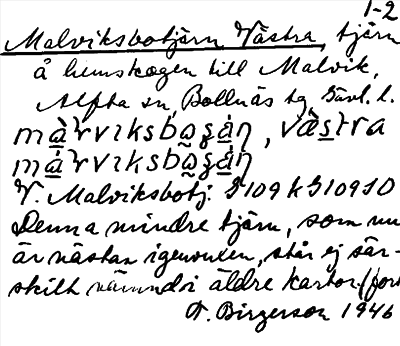 1-2
Malviksbotjärn Västra, tjärn
å hemskogen till Malvik,
Alfta sn, Bollnäs tg Gävl. l.
V. Malviksbotj. G109 k G109 SO
Denna mindre tjärn, som nu
är nästan igenvuxen, står ej sär-
skilt nämnd i äldre kartor. (fort
T. Birgerson 1946